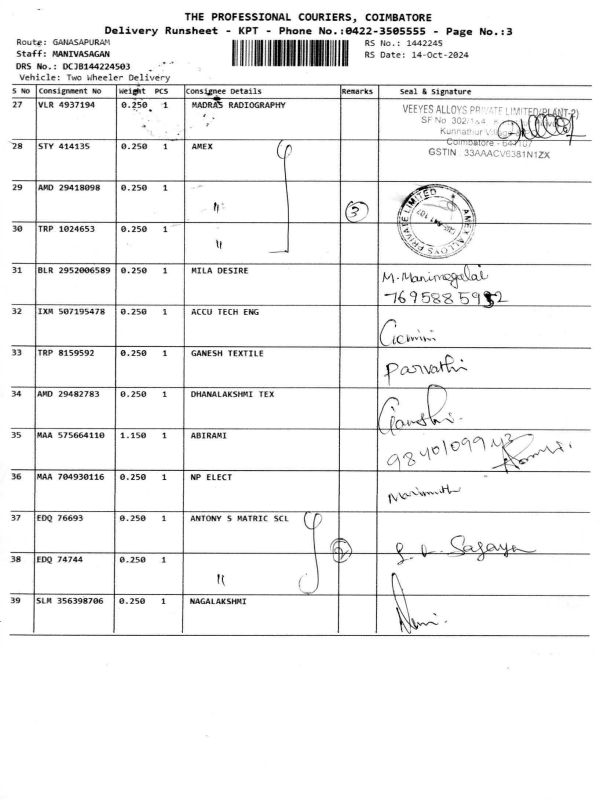 THE PROFESSIONAL COURIERS, COIMBATORE
Delivery Runsheet - KPT - Phone No.:0422-3505555 - Page No.:3
Route: GANASAPURAM
Staff: MANIVASAGAN
DRS No.: DCJB144224503
Vehicle: Two Wheeler Delivery
RS No.: 1442245
RS Date: 14-Oct-2024
S No Consignment No Weight PCS Consignee Details Remarks Seal & Signature
27 VLR 4937194 0.250 1 MADRAS RADIOGRAPHY
VEEYES ALLOYS PRIVATE LIMITED(PLANT-2)
SF No 302/1&4
Kunnathur
Coimbatore - 641107
GSTIN : 33AAACV6381N1ZX
28 STY 414135 0.250 1 AMEX
29 AMD 29418098 0.250 1 " 3
AMEX ALLOYS PRIVATE LIMITED
30 TRP 1024653 0.250 1 "
31 BLR 2952006589 0.250 1 MILA DESIRE M. Manimegalai
7695885952
32 IXM 507195478 0.250 1 ACCU TECH ENG
33 TRP 8159592 0.250 1 GANESH TEXTILE Parvathi
34 AMD 29482783 0.250 1 DHANALAKSHMI TEX
35 MAA 575664110 1.150 1 ABIRAMI 9840109943
36 MAA 704930116 0.250 1 NP ELECT Marimuth
37 EDQ 76693 0.250 1 ANTONY S MATRIC SCL 2 Sagaya
38 EDQ 74744 0.250 1 "
39 SLM 356398706 0.250 1 NAGALAKSHMI